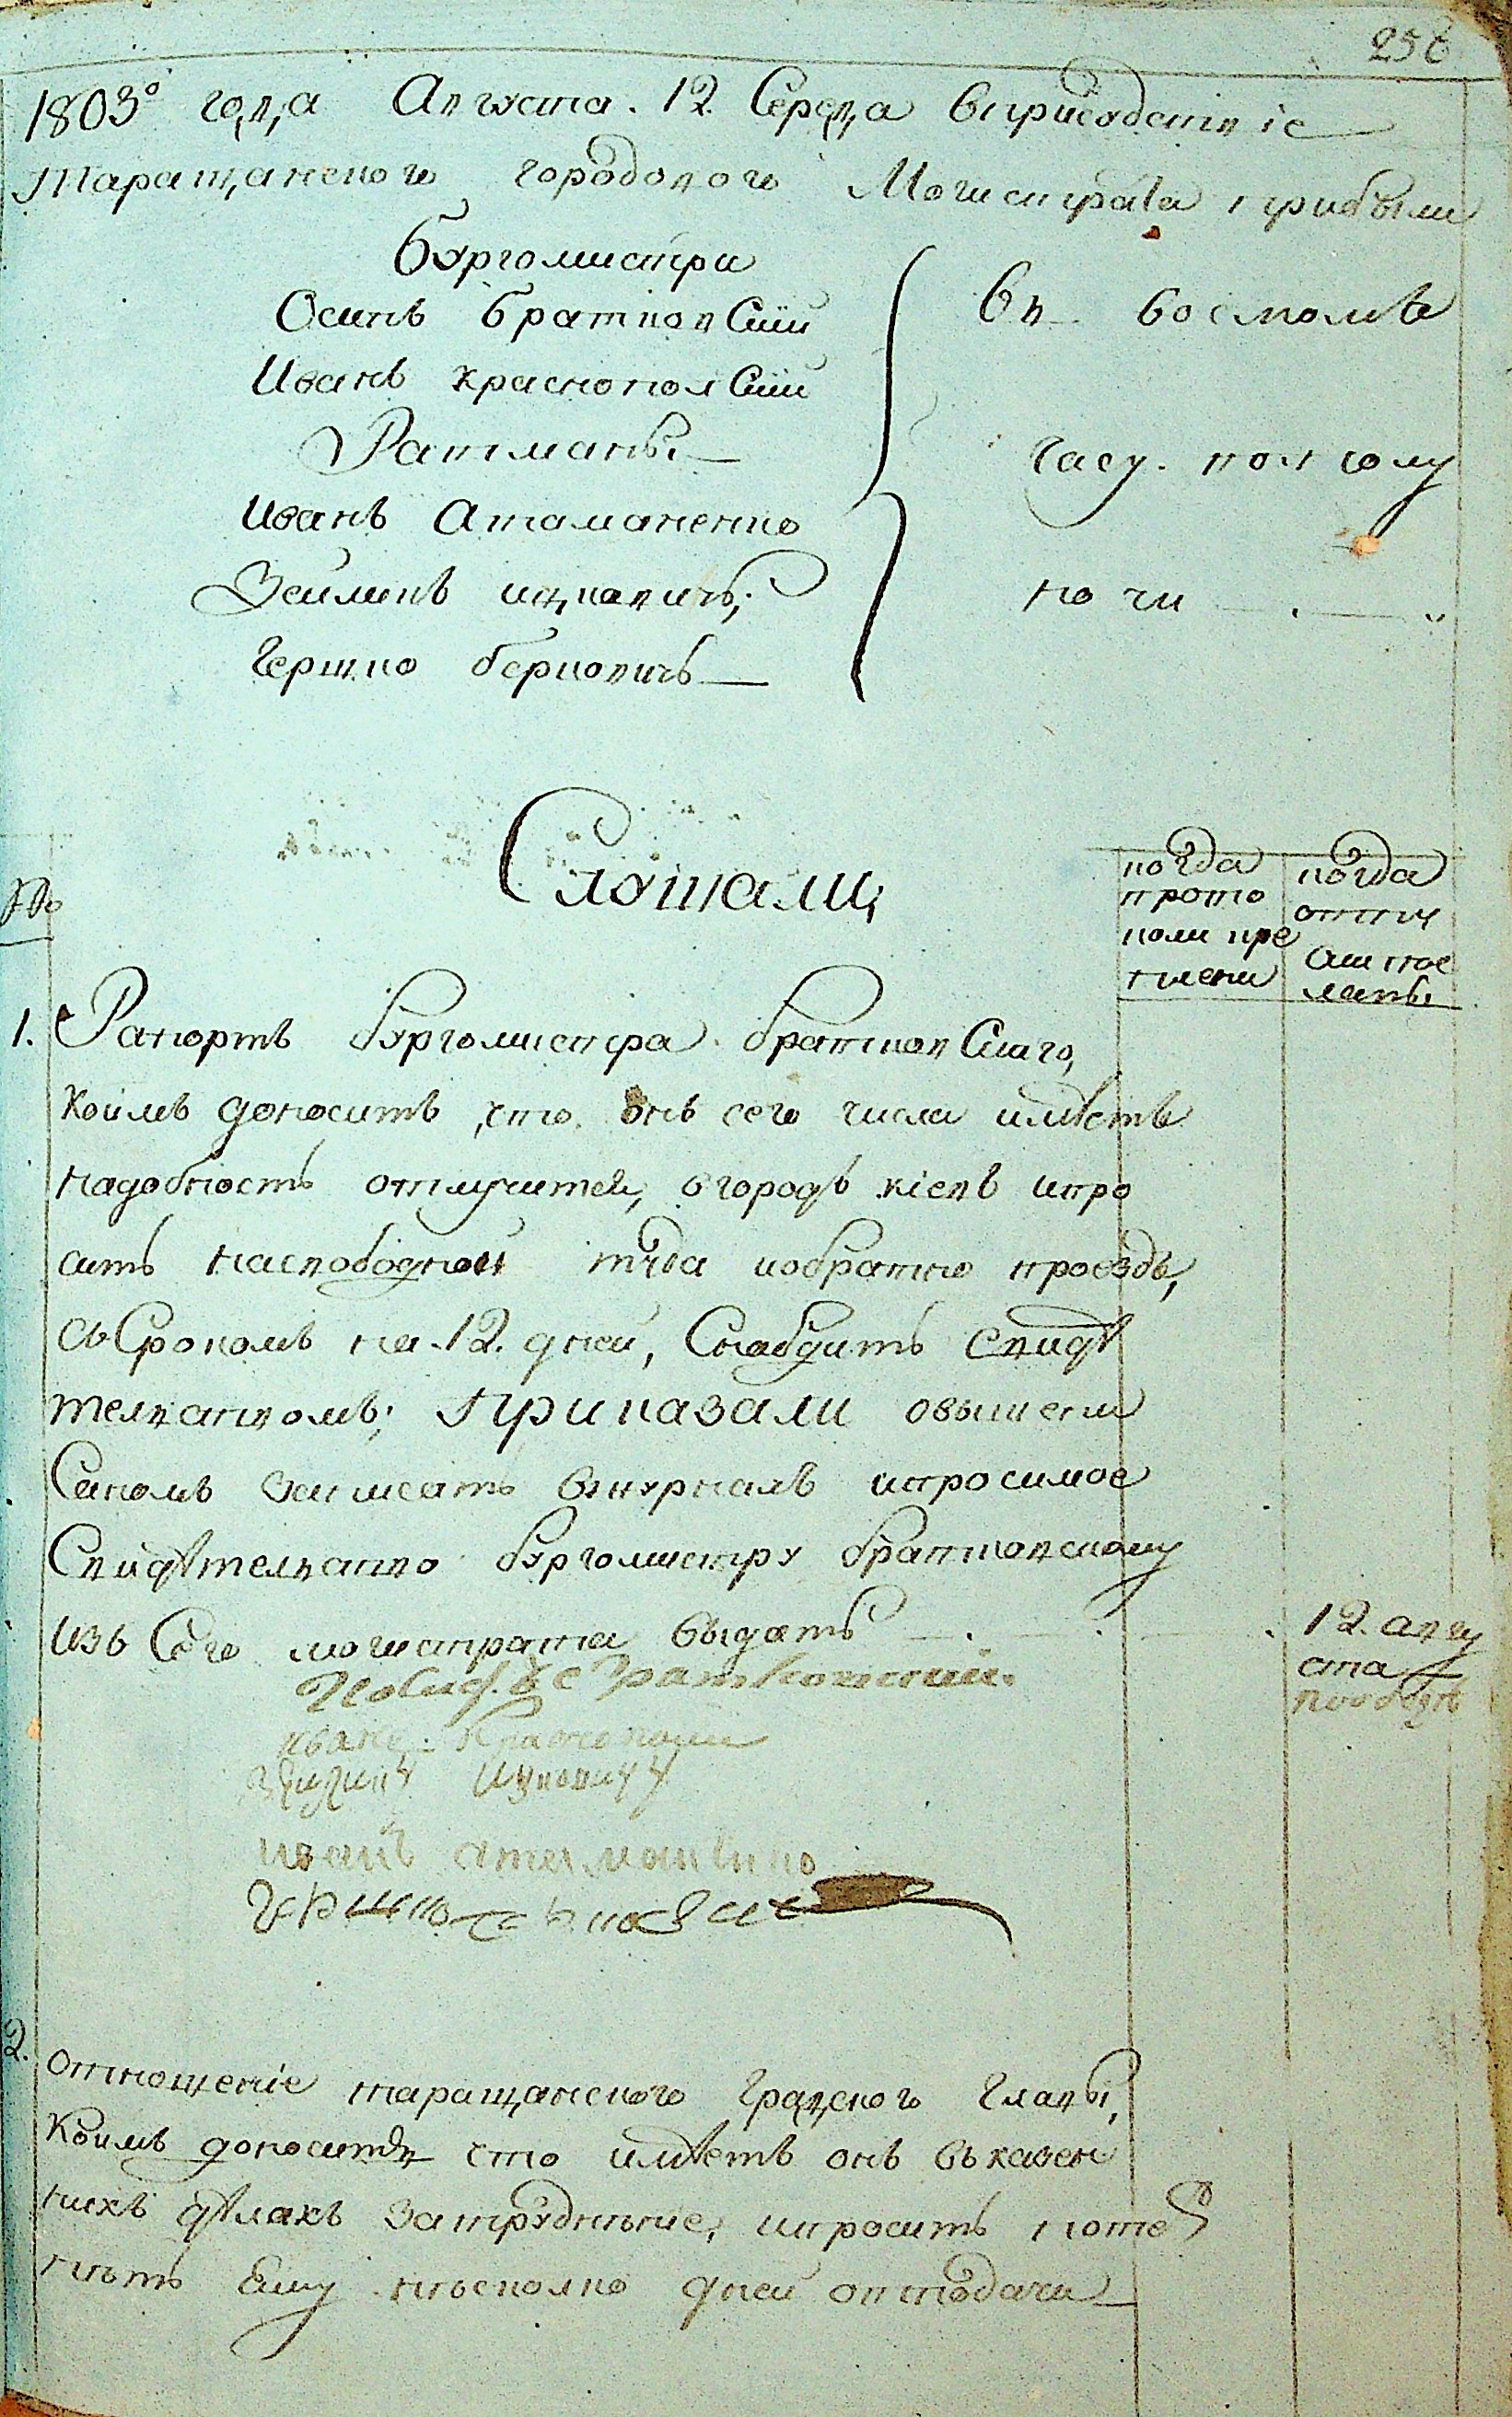 256
1803º года Августа. 12. Середа вприсудствіе
Таращанского городового Могистрата прибыли
бургомистри
Осипъ братковский
Иванъ краснополский
Ратманы
Иванъ Атаманенко
Зейликъ ицковичъ;
Гершко берковичъ
въ восмомъ
часу. пополу
ночи
Слушали,
№
когда
прото
коли пре
когда
1. Рапортъ бургомистра братковскаго,
коимъ доноситъ, что онъ сего числа имѣетъ
надобность отлучится, вгородъ кіевъ ипро
ситъ насвободной туда иобратно проездъ,
съ Срокомъ на 12. дней, Снабдить свидѣ
телвствомъ; приказали овышепи
Саномъ записать вжурналъ ипросимое
Свидѣтелвство бургомистру братковскому
изъ Сего могистрата выдать
12 авгу
ста
иванъ
Зейликъ Ицковичъ
иванъ атаманенко
2. отношение таращанского градского главы,
коимъ доноситъ что имѣетъ онъ въ казен
нихъ дѣлахъ затруднение, ипроситъ
ему несколко дней